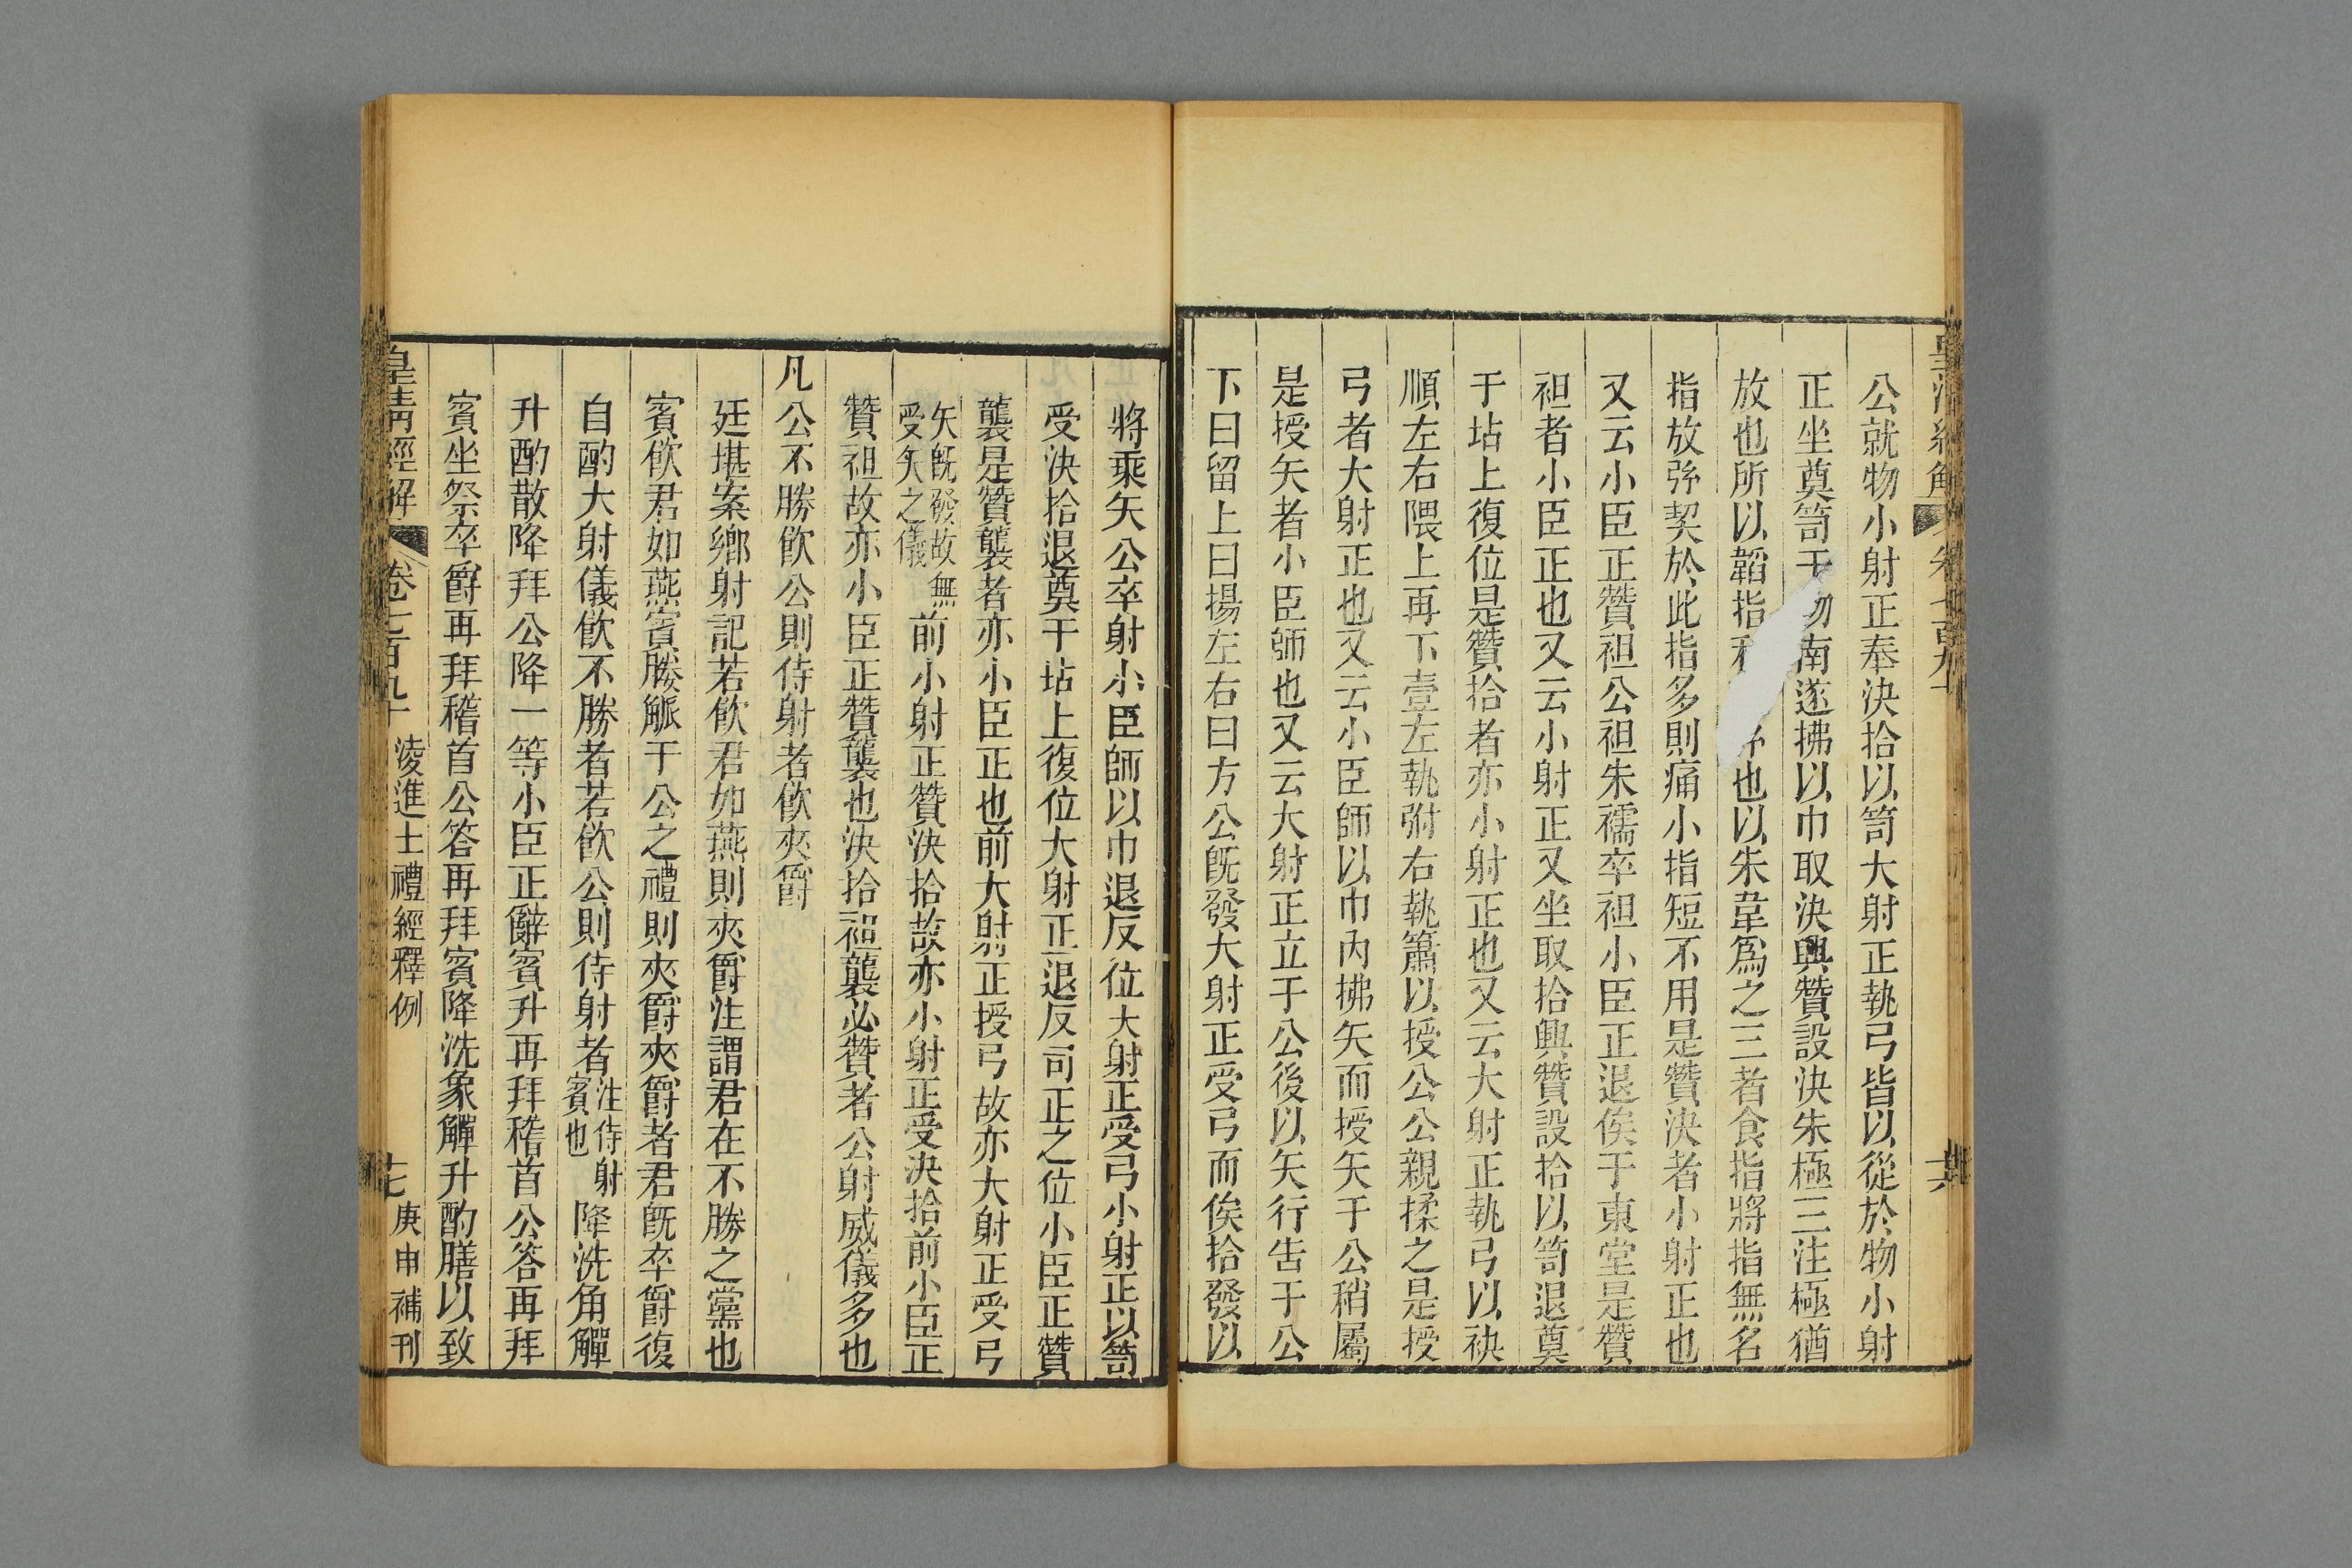 公就物小射正奉決拾以笥大射正執弓皆以從於物小射
正坐奠笥于物南遂拂以巾取決興贊設決朱極三注極猶
放也所以韜指也以朱韋爲之三者食指將指無名
指放弦契於此指多則痛小指短不用是贊決者小射正也
又云小臣正贊袒公袒朱襦卒袒小臣正退俟于東堂是贊
袒者小臣正也又云小射正又坐取拾興贊設拾以笥退奠
于坫上復位是贊拾者亦小射正也又云大射正執弓以袂
順左右隈上再下壹左執弣右執簫以授公公親揉之是授
弓者大射正也又云小臣師以巾內拂矢而授矢于公稍屬
是授矢者小臣師也又云大射正立于公後以矢行告于公
下曰留上曰揚左右曰方公既發大射正受弓而俟拾發以
將乘矢公卒射小臣師以巾退反位大射正受弓小射正以笥
受決拾退奠于坫上復位大射正退反司正之位小臣正贊
襲是贊襲者亦小臣正也前大射正授弓故亦大射正受弓
矢既發故無
受矢之儀
前小射正贊決拾故亦小射正受決拾前小臣正
贊袒故亦小臣正贊襲也決拾袒襲必贊者公射威儀多也
凡公不勝飲公則侍射者飲夾爵
廷堪案鄉射記若飲君如燕則夾爵注謂君在不勝之黨也
賓飲君如燕賓媵觚于公之禮則夾爵夾爵者君既卒爵復
自酌大射儀飲不勝者若飲公則侍射者
注侍射
賓也
降洗角觶
升酌散降拜公降一等小臣正辭賓升再拜稽首公答再拜
賓坐祭卒爵再拜稽首公答再拜賓降洗象觶升酌膳以致
皇清經解 卷七百九十 淩進士禮經釋例 七 庚申補刊